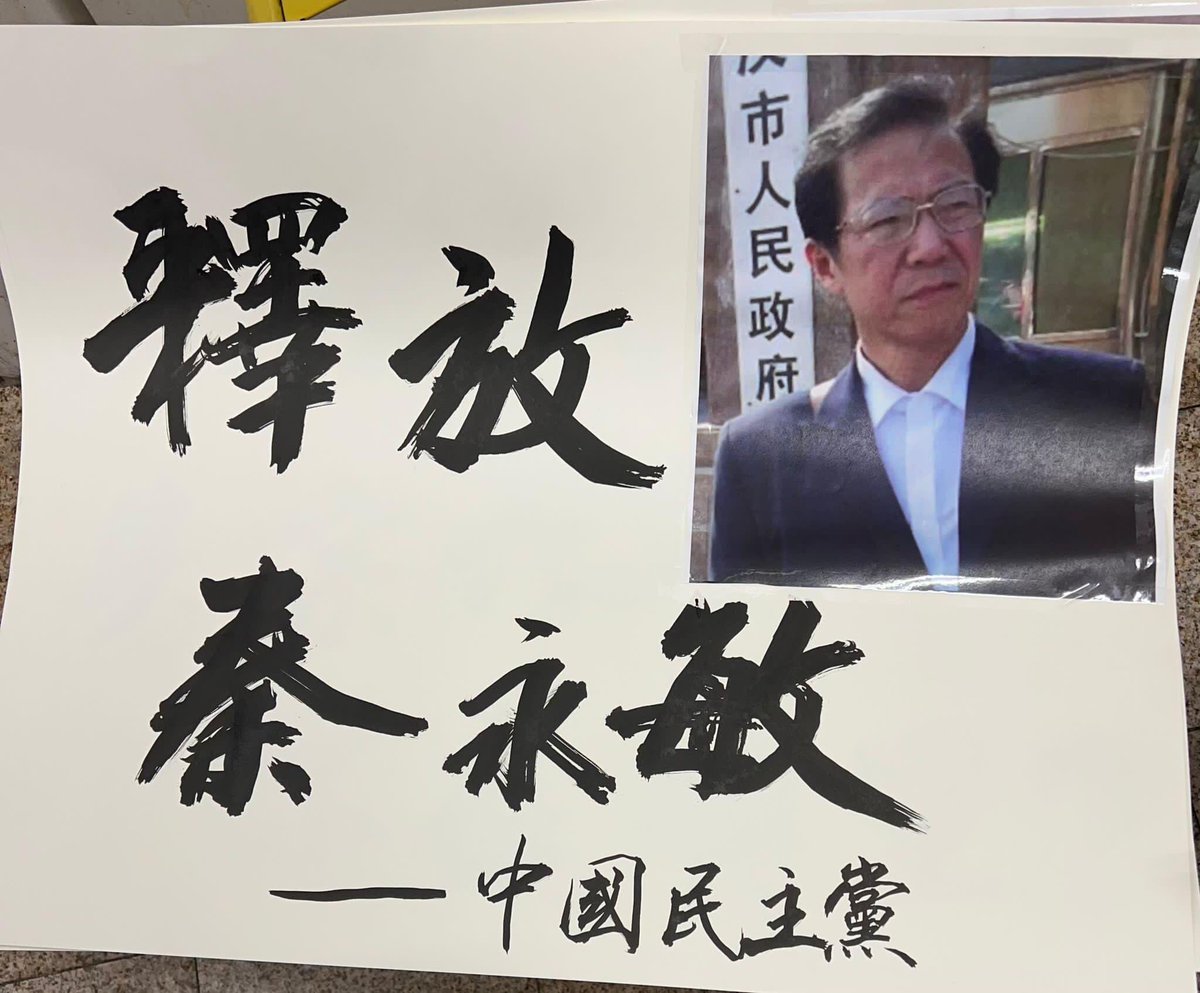 释放
秦永敏
——中國民主黨
汉市人民政府